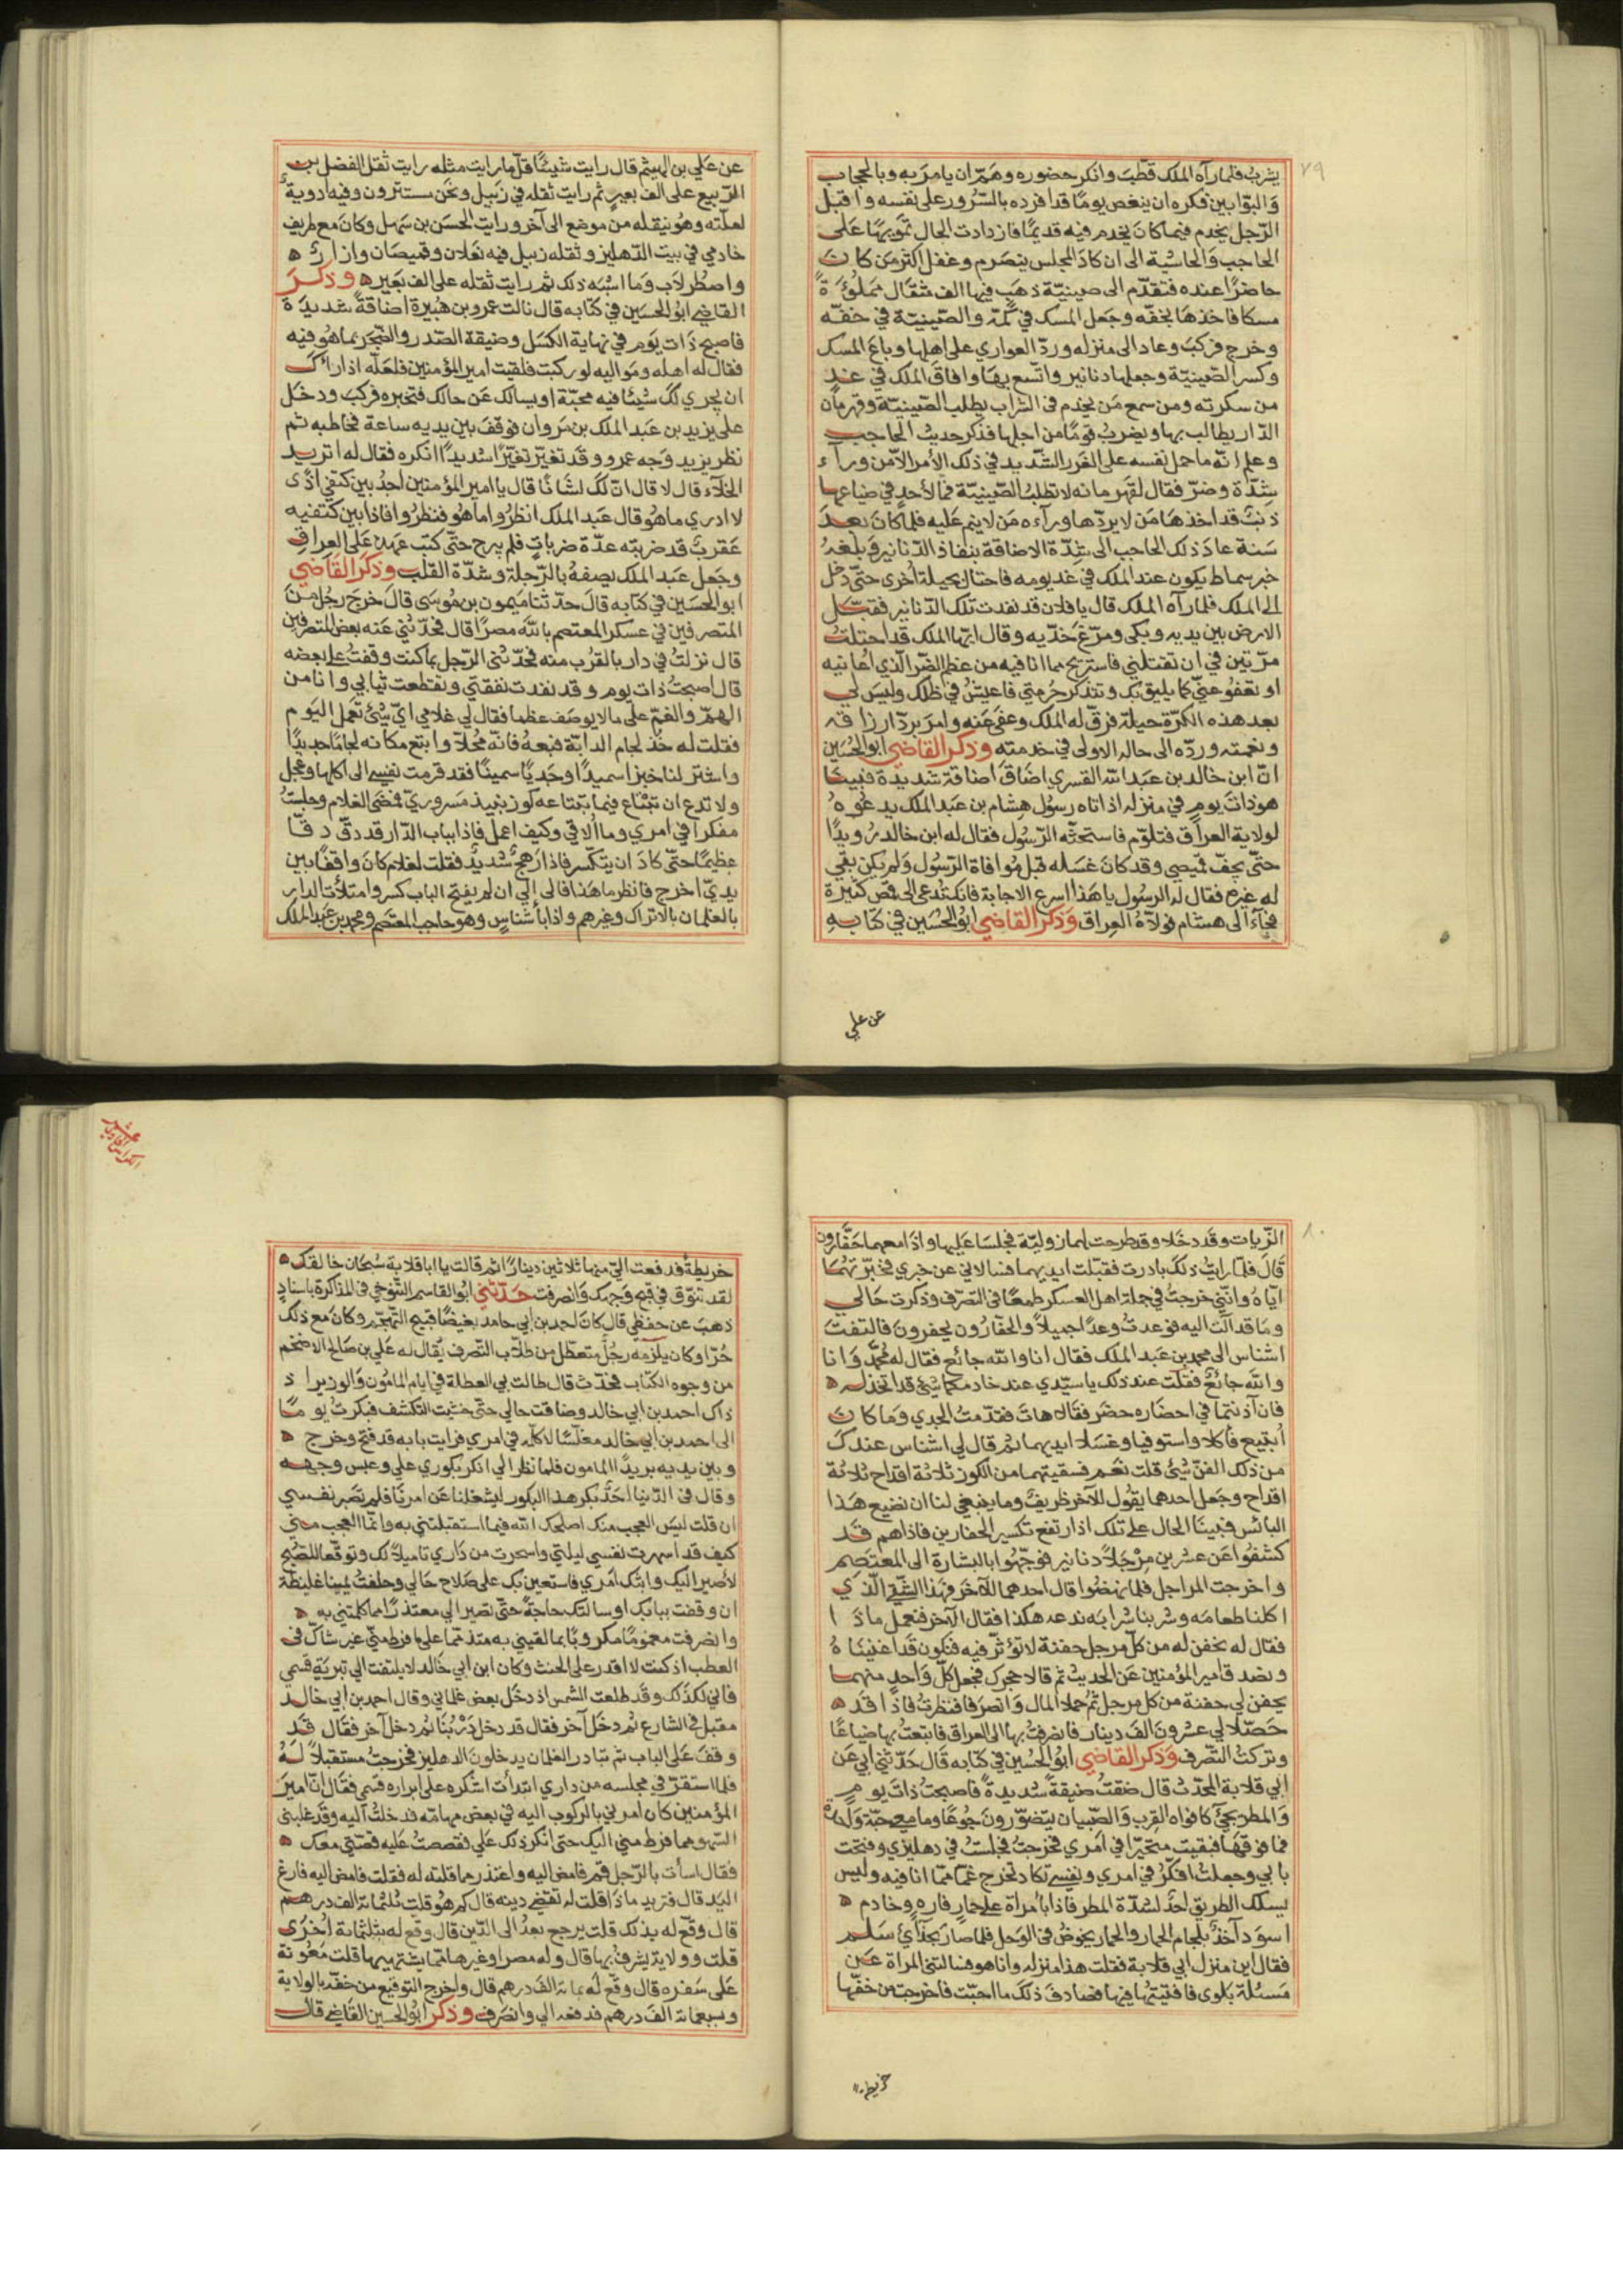 ٧٩
يشرب فلما رآه الملك قطّب وانكر حضوره وهمّ ان يامر به وبالحجاب
والبوابين فكره ان ينغص يومًا قد افرده بالسّرور على نفسه واقبل
الرّجل يخدم فيما كان يخدم فيه قديمًا فازدادت الحال تمويهًا على
الحاجب والحاشية الى ان كاد المجلس ينصرم وغفل اكثر من كان
حاضرًا عنده فتقدّم الى صينيّة ذهب فيها الف مثقال مملوّءة
مسكا فاخذها بخفّه وجعل المسك في كمّه والصّينيّة في خفّه
وخرج فركب وعاد الى منزله وردّ العواري على اهلها وباع المسك
وكسر الصّينيّة وجعلها دنانير واتّسع بها وافاق الملك في غد
من سكرته ومن سمع من يخدم في الشّراب يطلب الصّينيّة وقهرمان
الدّار يطالب بها ويضرب قومًا من اجلها فذكر حديث الحاجب
وعلم انّه ما حمل نفسه على الغرر الشّديد في ذلك الأمر الّا من ورآء
شدّة وضرّ فقال لقهرمانه لا تطلب الصّينيّة فما لأحدٍ في ضياعها
ذنبٌ قد اخذها من لا يردّها ورآءه من لا ينمّ عليه فلما كان بعد
سنة عاد ذلك الحاجب الى شدّة الاضاقة بنفاذ الدّنانير وبلغهُ
خبر سماط يكون عند الملك في غد يومه فاحتال بحيلة أخرى حتّى دخل
الى الملك فلما رآه الملك قال يا فلان قد نفدت تلك الدّنانير فقبّل
الارض بين يديه وبكى ومرّغ خدّيه وقال ايّها الملك قد احتلت
مرّتين في ان تقتلني فاستريح مما انا فيه من عظم الضّر الّذي اعانيه
او تعفو عنّي كما يليق بك وتتذكر حُرمتي فاعيش في ظلك وليس لي
بعد هذه الكرّة حيلة فرقّ له الملك وعفى عنه وامر بردّ ارزاقه
ونعمته وردّه الى حاله الاولى في خدمته وذكر القاضي ابو الحُسَين
انّ ابن خالد بن عبد الله القسري اضاق اضاقة شديدة فبينا
هو ذات يوم في منزله اذ اتاه رسُول هشام بن عبد الملك يدعوه
لولاية العراق فتلوّم فاستحثّه الرّسُول فقال له ابن خالد رويدًا
حتّى يجف قميصي وقد كان غسله قبل مُوافاة الرّسُول ولم يكن بقي
له غيره فقال له الرسُول يا هذا اسرع الاجابة فانك تُدعى الى قمص كثيرة
فجآء الى هشام فولّاهُ العراق وَذكر القاضي ابو الحُسَين في كتابه
عن علي
عن علي بن الهيثم قال رايت شيئًا قلّ ما رايت مثله رايت ثقل الفضل بن
الرّبيع على الف بعير ثم رايت ثقله في زبيل ونحن مستترون وفيه ادوية
لعلّته وهو ينقله من موضع الى آخر ورايت الحسَن بن سَهل وكان مع طريف
خادمي في بيت الدّهليز وثقله زبيل فيه نعلان وقميصان وازارٌ
واصطُرلاب وما اشبه ذلك ثم رايت ثقله على الف بَعير وذكَر
القاضي ابُو الحسَين في كتابه قال نالت عمرو بن هُبيرة اضاقةٌ شديدة
فاصبح ذات يوم في نهاية الكسَل وضيقة الصّدر والضّجر مما هُو فيه
فقال له اهله ومواليه لو ركبت فلقيت امير المؤمنين فلعلّه اذا راك
ان يجري لك شيئا فيه محبّة او يسالك عن حالك فتخبره فركب ودخل
على يزيد بن عبد الملك بن مَروان فوقف بين يديه ساعة فخاطبه ثم
نظر يزيد وجه عمرو وقد تغيّر تغيّرًا شديدًا انكره فقال له اتريد
الخلآء قال لا قال انّ لك لشَانًا قال يا امير المؤمنين اجدُ بين كتفي اذًى
لا ادري ما هُو قال عبد الملك انظروا ما هُو فنظرُوا فاذا بين كتفيه
عَقربٌ قد ضربته عدّة ضرباتٍ فلم يبرح حتّى كتب عهده على العراق
وجعل عبد الملك يصفهُ بالرّجلة وشدّة القلب وذكر القَاضي
ابو الحسَين في كتابه قال حدّثنا ميمون بن مُوسَى قال خرج رجُل من
المتصرفين في عسكر المعتصم بالله مصرًا قال فحدّثني عنه بعض المتصرفين
قال نزلتُ في دار بالقرب منه فحدّثني الرّجل بما كنت وقفتُ على بعضه
قال اصبحتُ ذات يوم وقد نفدت نفقتي وتقطعت ثيابي وانا من
الهمّ والغمّ على ما لا يوصَف عظما فقال لي غلامي ايّ شيئ تعمل اليَوم
فقلت له خُذ لجام الدابّة فبعهُ فانّه مُحلّا وابتع مكانه لجامًا جديدًا
واشتر لنا خبزا سميدًا وجَديًا سمينًا فقد قرمت نفسي الى اكلها وعجل
ولا تدع ان تبتاع فيما تبتاعه كوز نبيذ مسروريّ فمضى الغلام وجلستُ
مفكرا في امري وما أُلاقي وكيف اعمل فاذا بباب الدّار قد دقّ دقًّا
عظيمًا حتّى كاد ان يتكّسر فاذا رهجٌ شديدٌ فقلت لغلام كان واقفًا بين
يديّ اخرج فانظر ما هذا فالى ان لم يفتح الباب كسر وامتلأت الدار
بالغلمان بالاتراك وغيرهم واذا بأشناس وهو حاجب المعتصم ومحمد بن عبد الملك
٨٠
الزّيات وقد دخلا وقد طرحت لهما زوليّة فجلسَا عليها واذا معهما حَفّارون
قال فلما رايتُ ذلك بادرت فقبّلت ايديهما فسالاني عن خبري فخبّرتهما
ايّاهُ وانّني خرجتُ في جملة اهل العسكر طمعًا في التصرّف وذكرت حَالي
وما قد آلت اليه فوعدتُ وعدًا جميلاً والحفّارُون يحفرون فالتفت
اشناس الى محمد بن عبد الملك فقال انا والله جائع فقال له مُحمّد وانا
والله جائعٌ فقلت عند ذلك يا سيّدي عند خادمكما شيئٌ قد اتخذ له
فان آذنتما في احضاره حضر فقالا هات فقدّمتُ الجدي وما كان
أُبتيع فأكلا واستوفيا وغسلا ايديهما ثم قال لي اشناس عندك
من ذلك الفنّ شيئ قلت نعم فسقيتهما من الكوز ثلاثة اقداح ثلاثة
اقداح وجعل احدهما يقول للآخر ظريفٌ وما ينبغي لنا ان نضيع هذا
البائس فبينا الحال على تلك اذ ارتفع تكبير الحفارين فاذا هم قد
كشفوا عن عشرين مرْجلاً دنانير فوجّهُوا بالبشارة الى المعتصم
واخرجت المراجل فلما نهضُوا قال احدهما للآخر فهذا الشّقي الّذي
اكلنا طعامه وشربنا شرابه ندعه هكذا فقال الآخر فنعمل ماذا
فقال له نحفن له من كلّ مرجل حفنة لا تؤثّر فيه فنكون قد اغنيناهُ
ونصدق امير المؤمنين عن الحديث ثم قالا حجرك فجعل كلّ واحد منهما
يحفن لي حفنة من كل مرجل ثُم حملا المال وانصرفا فنظرتُ فاذا قد
حَصّلا لي عشرُونَ الف دينار فانصرفتُ بها الى العراق فابتعتُ بها ضياعًا
وتركتُ التصّرف وَذكر القاضي ابُو الحُسَين في كتابه قال حَدّثني ابي عَن
ابي قلابة المحدّث قال ضقتُ ضيقةً شديدةً فاصبحتُ ذات يوم
والمطر يجيئُ كافواه القرب والصّبيان يتضوّرون جُوعًا وما معي حبّة ولا
فما فوقها فبقيت متحيّرا في امري فخرجتُ فجلستُ في دهليزي وفتحت
بابي وجعلتُ افكّرُ في امري ونفسي تكاد تخرج غمّا ممّا انا فيه وليس
يسلك الطريق احدٌ لشدّة المطر فاذا بامُرأة على حمارٍ فاره وخادم
اسوَد آخذٌ بلجام الحمار والحمار يخوضُ في الوَحل فلما صار بحذآي سَلم
فقال اين منزل ابي قلابة فقلت هذا منزله وانا هو فسالتني المراة عَن
مسئلة بلوى فافتيتها فيها فصادفَ ذلك ما احبّت فاخرجت من خفّها
خريطة
خريطةً فدفعت اليّ منها ثلاثين دينارًا ثم قالت يا ابا قلابة سُبحان خالقك
لقد تنوّق في قبح وجهك وانصرفت حَدّثني ابو القاسم التّنوخي في المذاكرة باسنادٍ
ذهبَ عن حفظي قال كان احمد بن ابي حامد بغيضًا قبيح التّهجّم وكان مع ذلك
حُرّا وكان يلزمه رجُلٌ متعطّل من طلّاب التّصرف يُقال له علي بن صَالح الاضخم
من وجوه الكتّاب فحدّث قال طالت بي العطلة في ايام المامُون والوزير اذ
ذاك احمد بن ابي خالد وضاقت حالي حتّى خشيت التّكشّف فبكرتُ يومًا
الى احمد بن ابي خالد مغلّسًا لاكلّمه في امري فرايت بابه قد فتح وخرج
وبين يديه يريدُ المامون فلما نظر الي انكر بكوري علي وعبس وجهه
وقال في الدّنيا احدٌ بكر هذا البكور ليشغلنا عن امرنا فلم تصبر نفسي
ان قلت ليس العجب منك اصلحك الله فيما استقبلتني به وانّما العجب منّي
كيف قد اسهرت نفسي ليلتي واسهرت من داري تاميلاً لك وتوقعا للصّبح
لأصير اليك وابثّك امري فاستعين بك على صلاح حالي وحلفتُ يمينا غليظة
ان وقفت ببابك او سالتك حاجةً حتّى تصير الي معتذرًا مما كلمتني به
وانصرفت مغمُومًا مكروبًا بما لقيني به متذمّمًا على ما فرط منّي غير شاك في
العطب اذ كنت لا اقدر على الحنث وكان ابن ابي خالد لا يلتفت الي تبريَة قسمي
فاني لكذلك وقد طلعت الشمس اذ دخل بعض غلماني وقال احمد بن ابي خالد
مقبل في الشارع ثم دخل آخر فقال قد دخل دَرْبُنا ثم دخل آخر فقال قد
وقف على الباب ثم تبادر الغلمان يدخلون الدهليز فخرجتُ مستقبلاً له
فلما استقرّ في مجلسه من داري ابتدأت اشكره على ابراره قسمي فقال انّ امير
المؤمنين كان امرني بالركوب اليه في بعض مهامّه فدخلتُ اليه وقد غلبني
السّهو مما فرط مني اليك حتى انكر ذلك علي فقصصتُ عليه قصّتي معك
فقال اسأت بالرّجل قم فامض اليه واعتذر مما قلته له فقلت فامض اليه فارغ
اليد قال فتريد ماذا قلت له تقضي دينه قال كم هُو قلت ثلثمائة الف درهم
قال وقّع له بذلك قلت يرجع بعدُ الى الدّين قال وقّع له بثلثمائة أُخرى
قلت وولاية يشرفُ بها قال وله مصر او غيرها مما يشتهيها قلت مَعُونة
على سفره قال وقّع له بمائة الف درهم قال واخرج التوقيع من خفّه بالولاية
وبسبعمائة الف درهم فدفعه الي وانصَرف وذكر ابُو الحسين القَاضي قال